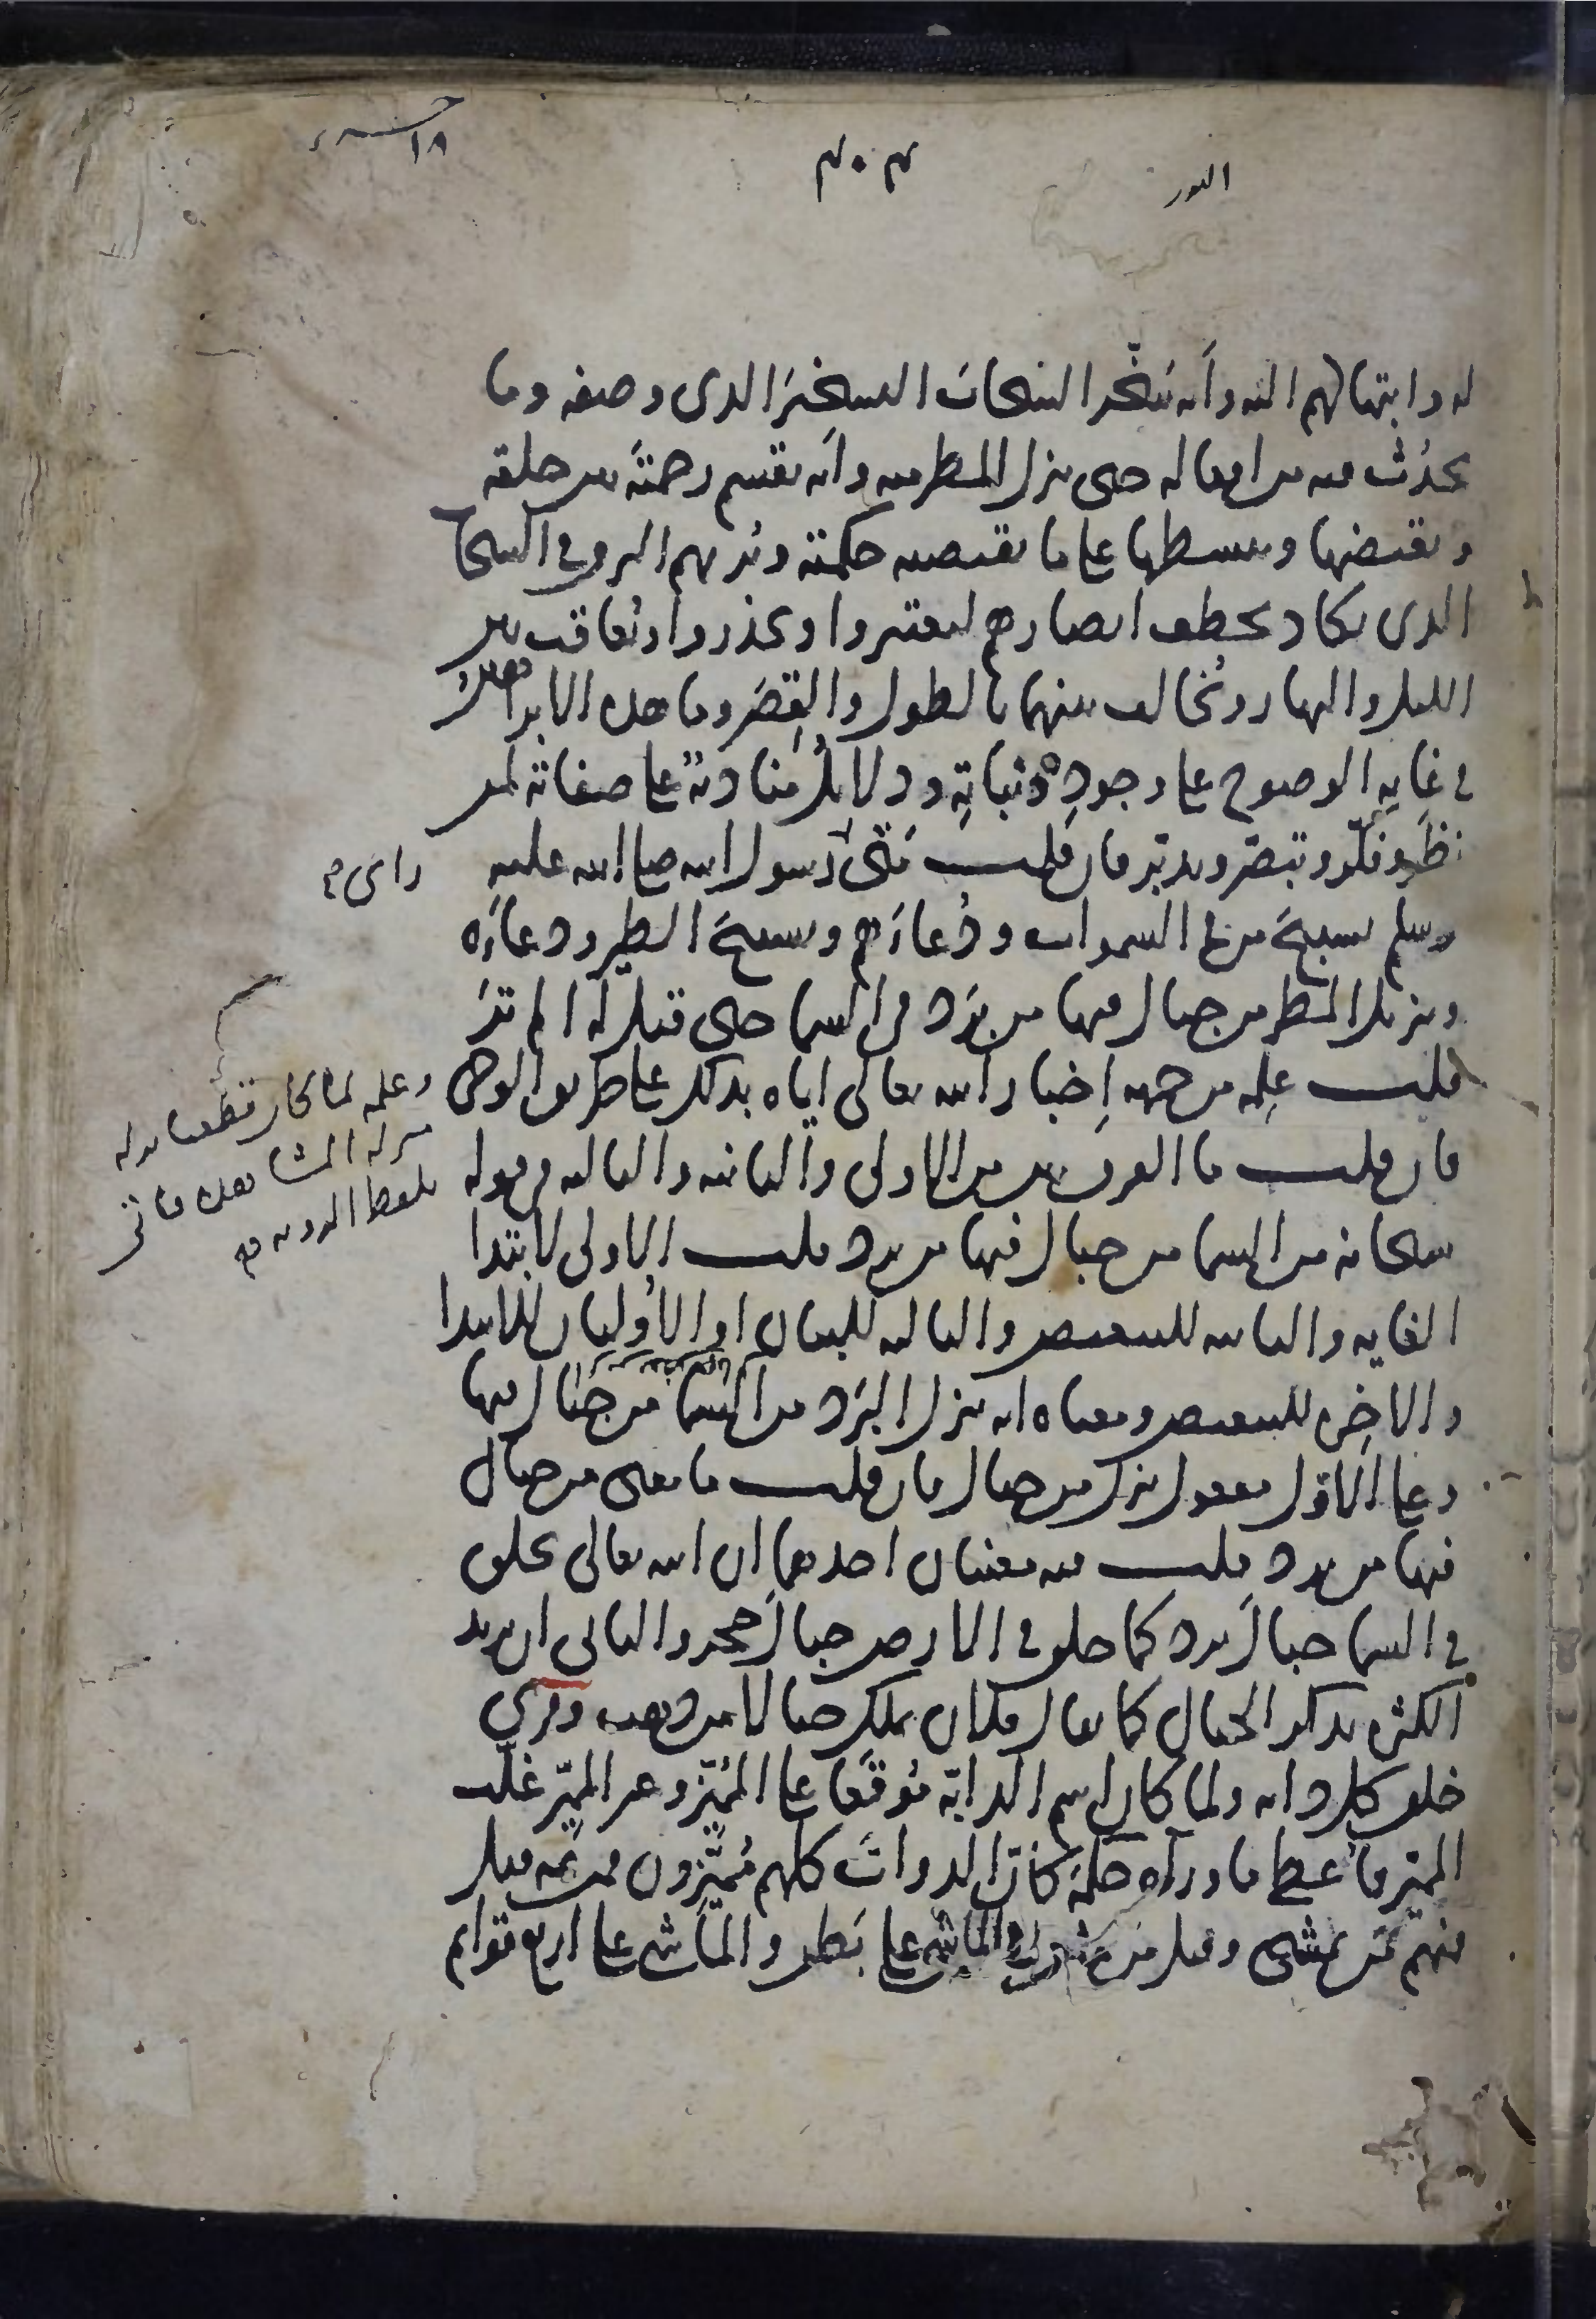 النور
٣٠٣
١٨
له وابتهالهم اليه وأنه سخّر السحاب التسخير الذي وصفه وما
يحدث فيه من افعاله حتى ينزل المطر منه وأنه يقسم رحمته بين خلقه
ويقبضها ويبسطها على ما تقتضيه حكمته ويُريهم البرق في السحاب
الذي يكاد يخطف ابصارهم ليعتبروا ويحذروا ويُعاقب بين
الليل والنهار ويُخالف بينهما بالطول والقِصَر وما هذه الا براهين
في غاية الوضوح على وجوده وثباته ودلائل مناديةٌ على صفاته لمن
نظر وفكّر وتبصّر وتدبّر فان قلت متى رأى رسول الله صلى الله عليه
وسلم تسبيحَ من في السموات ودُعاءَهم وتسبيحَ الطير ودعاءَه
وتنزيل المطر من جبال فيها من بَرَد في السما حتى قيل له الم تَرَ
قلت عَلِمه من جهة إخبار الله تعالى اياه بذلك على طريق الوحي
فان قلت ما الفرق بين من الاولى والثانية والثالثة في قوله
سبحانه من السما من جبال فيها من برد قلت الاولى لابتدا
الغاية والثانية للتبعيض والثالثة للبيان او الأوليان للابتدا
والاخِرة للتبعيض ومعناه انه ينزل البَرَد من السما من جبال فيها
وعلى الاوّل مفعول ينزل من جبال فان قلت ما معنى من جبال
فيها من برد قلت فيه معنيان احدهما ان الله تعالى يخلق
في السما جبالَ برد كما خلق في الارض جبالَ حجر والثاني ان يريد
الكثرة بذكر الجبال كما يقال فلان يملك جبالا من ذهب وقرئ
خلق كل دابه ولما كان اسم الدابّة مُوقَعًا على المميّز وغير المميّز غلّب
المميّز فأعطى ما وراه حكمَه كأنّ الدوابّ كلهم مُميّزون فمن ثَمّ قيل
فمنهم مَن يمشي وقيل مَن يمشي في الماشي على بَطن والماشي على اربع قوائم
رأى صح
وعلمه لما كان قطعيا نزله
منزلة المشاهدة فاتى
بلفظ الرؤية صح